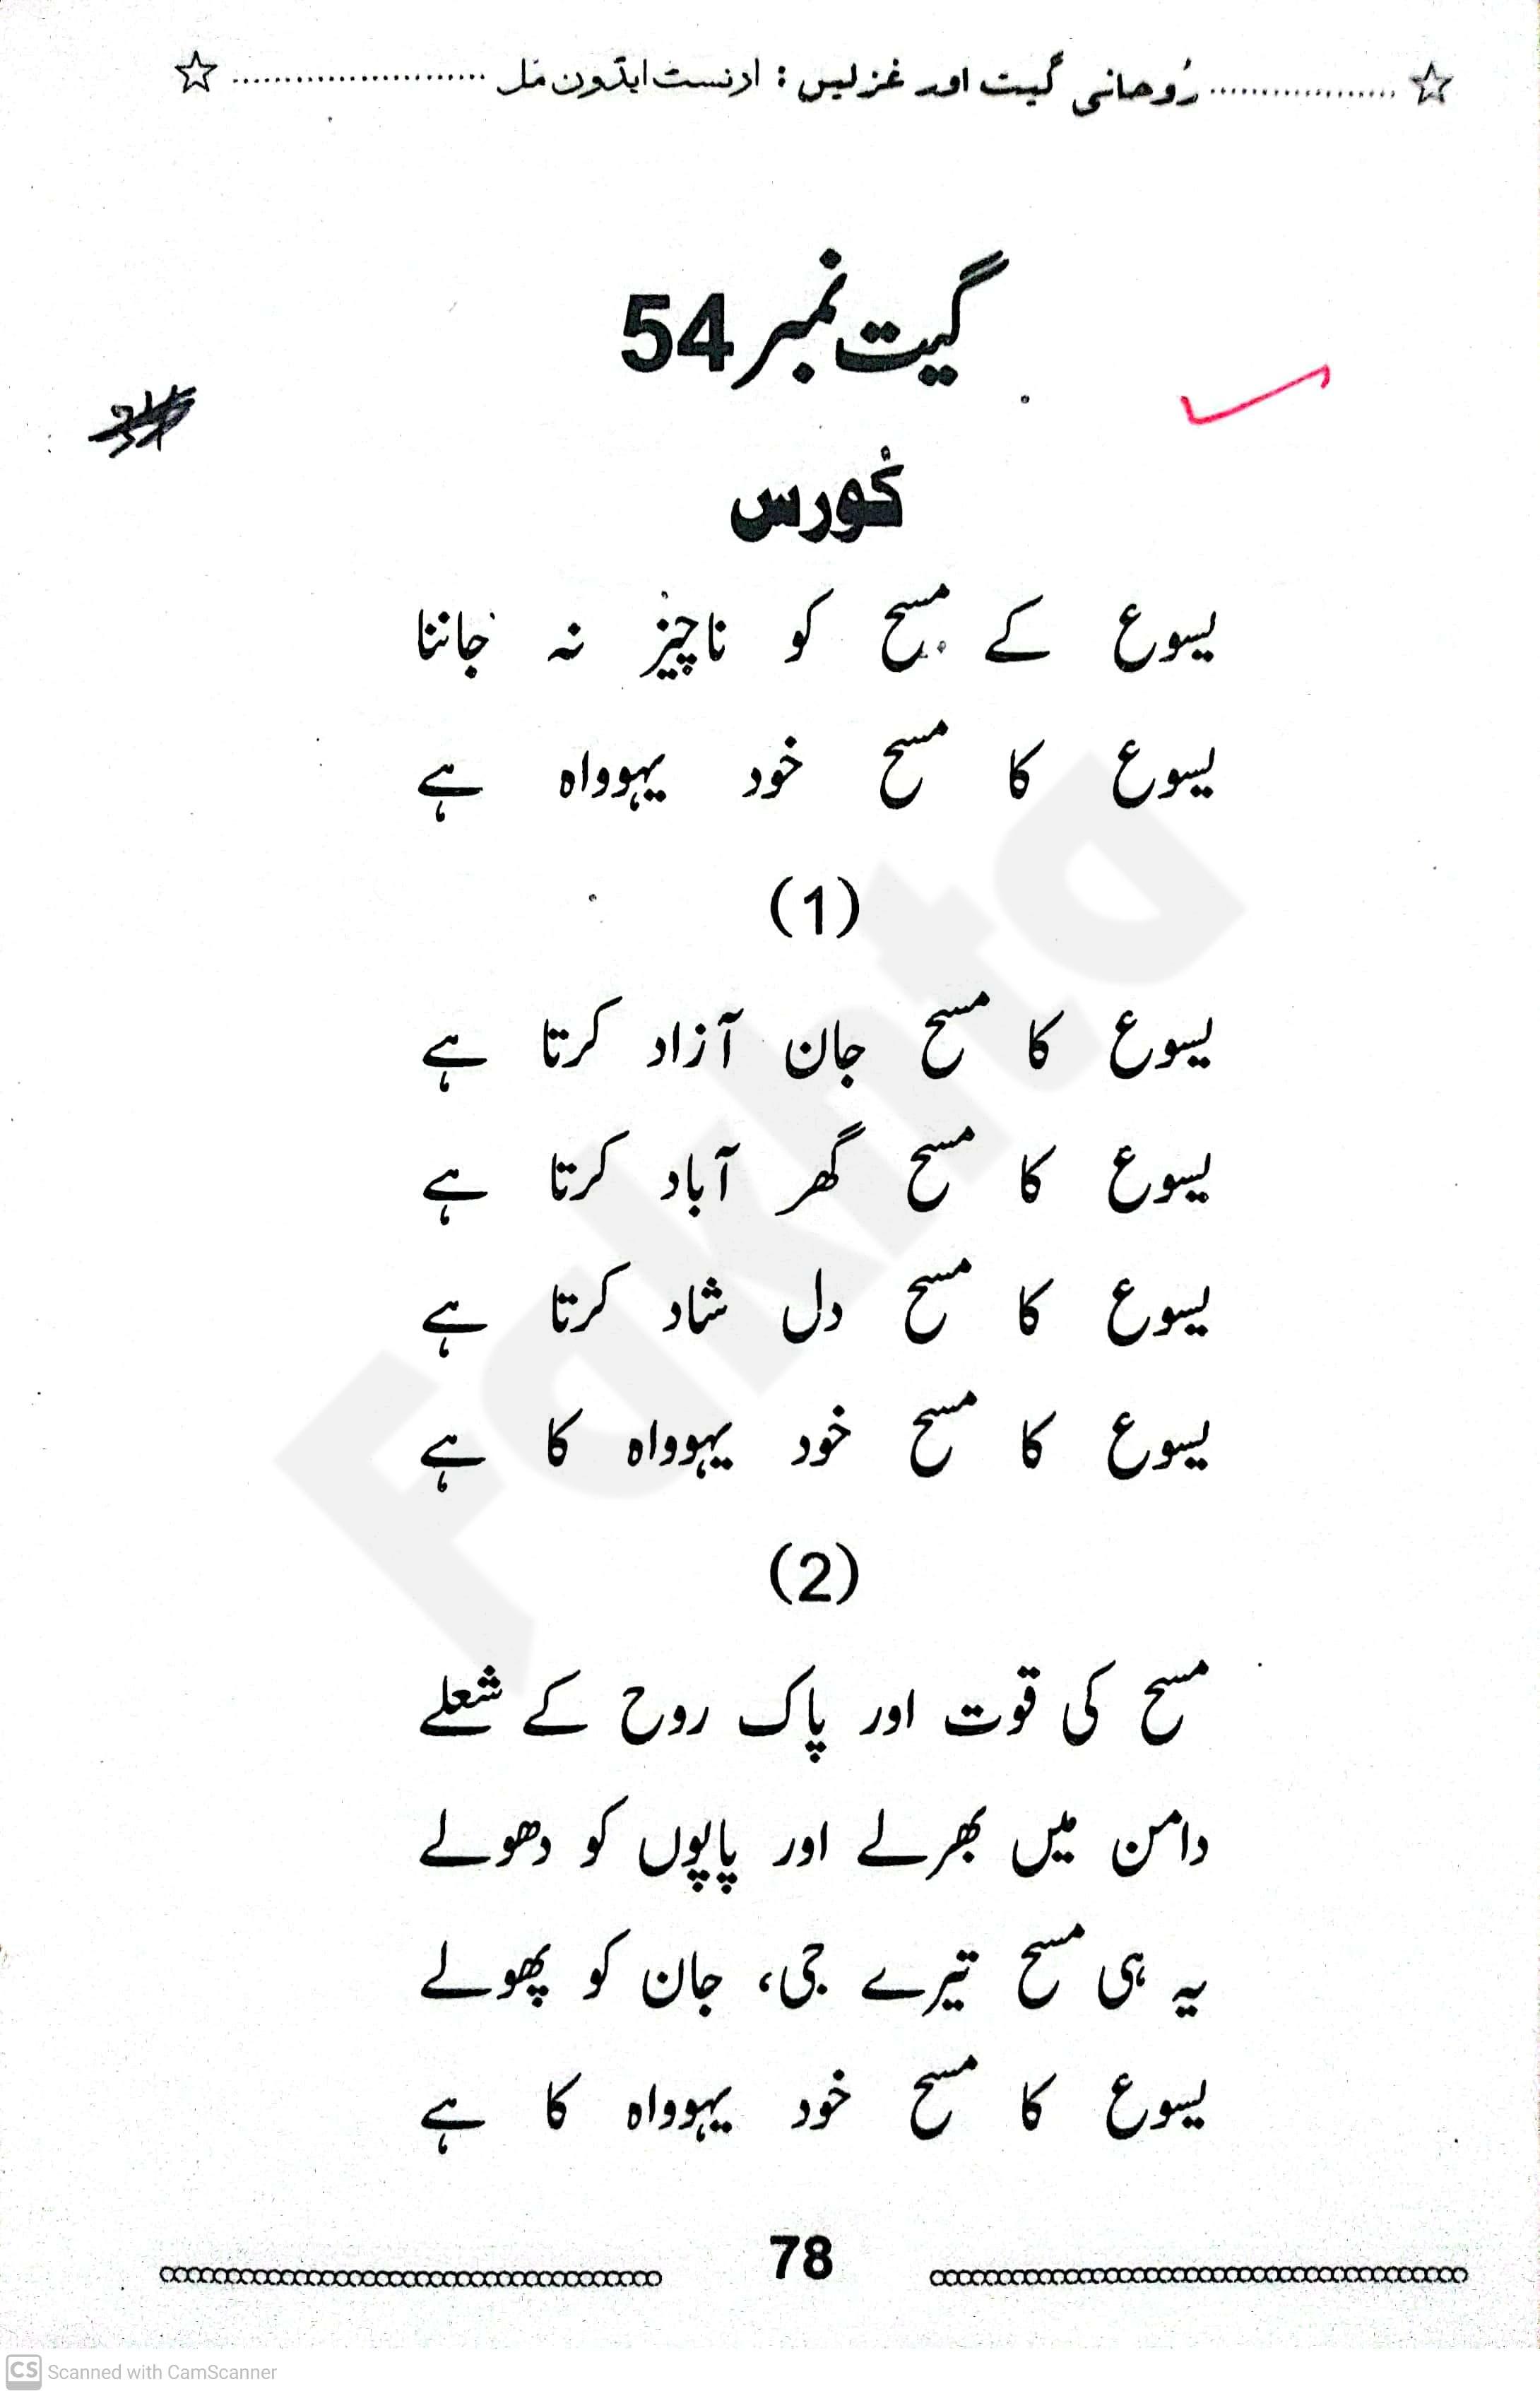 رُوحانی گیت اور غزلیں : ارنسٹ ایڈون مَل
گیت نمبر 54
کورس
یسوع کے مسح کو ناچیز نہ جاننا
یسوع کا مسح خود یہوواہ ہے
(1)
یسوع کا مسح جان آزاد کرتا ہے
یسوع کا مسح گھر آباد کرتا ہے
یسوع کا مسح دل شاد کرتا ہے
یسوع کا مسح خود یہوواہ کا ہے
(2)
مسح کی قوت اور پاک روح کے شعلے
دامن میں بھرلے اور پاپوں کو دھولے
یہ ہی مسح تیرے جی، جان کو پھولے
یسوع کا مسح خود یہوواہ کا ہے
78
Fakhta
CS Scanned with CamScanner